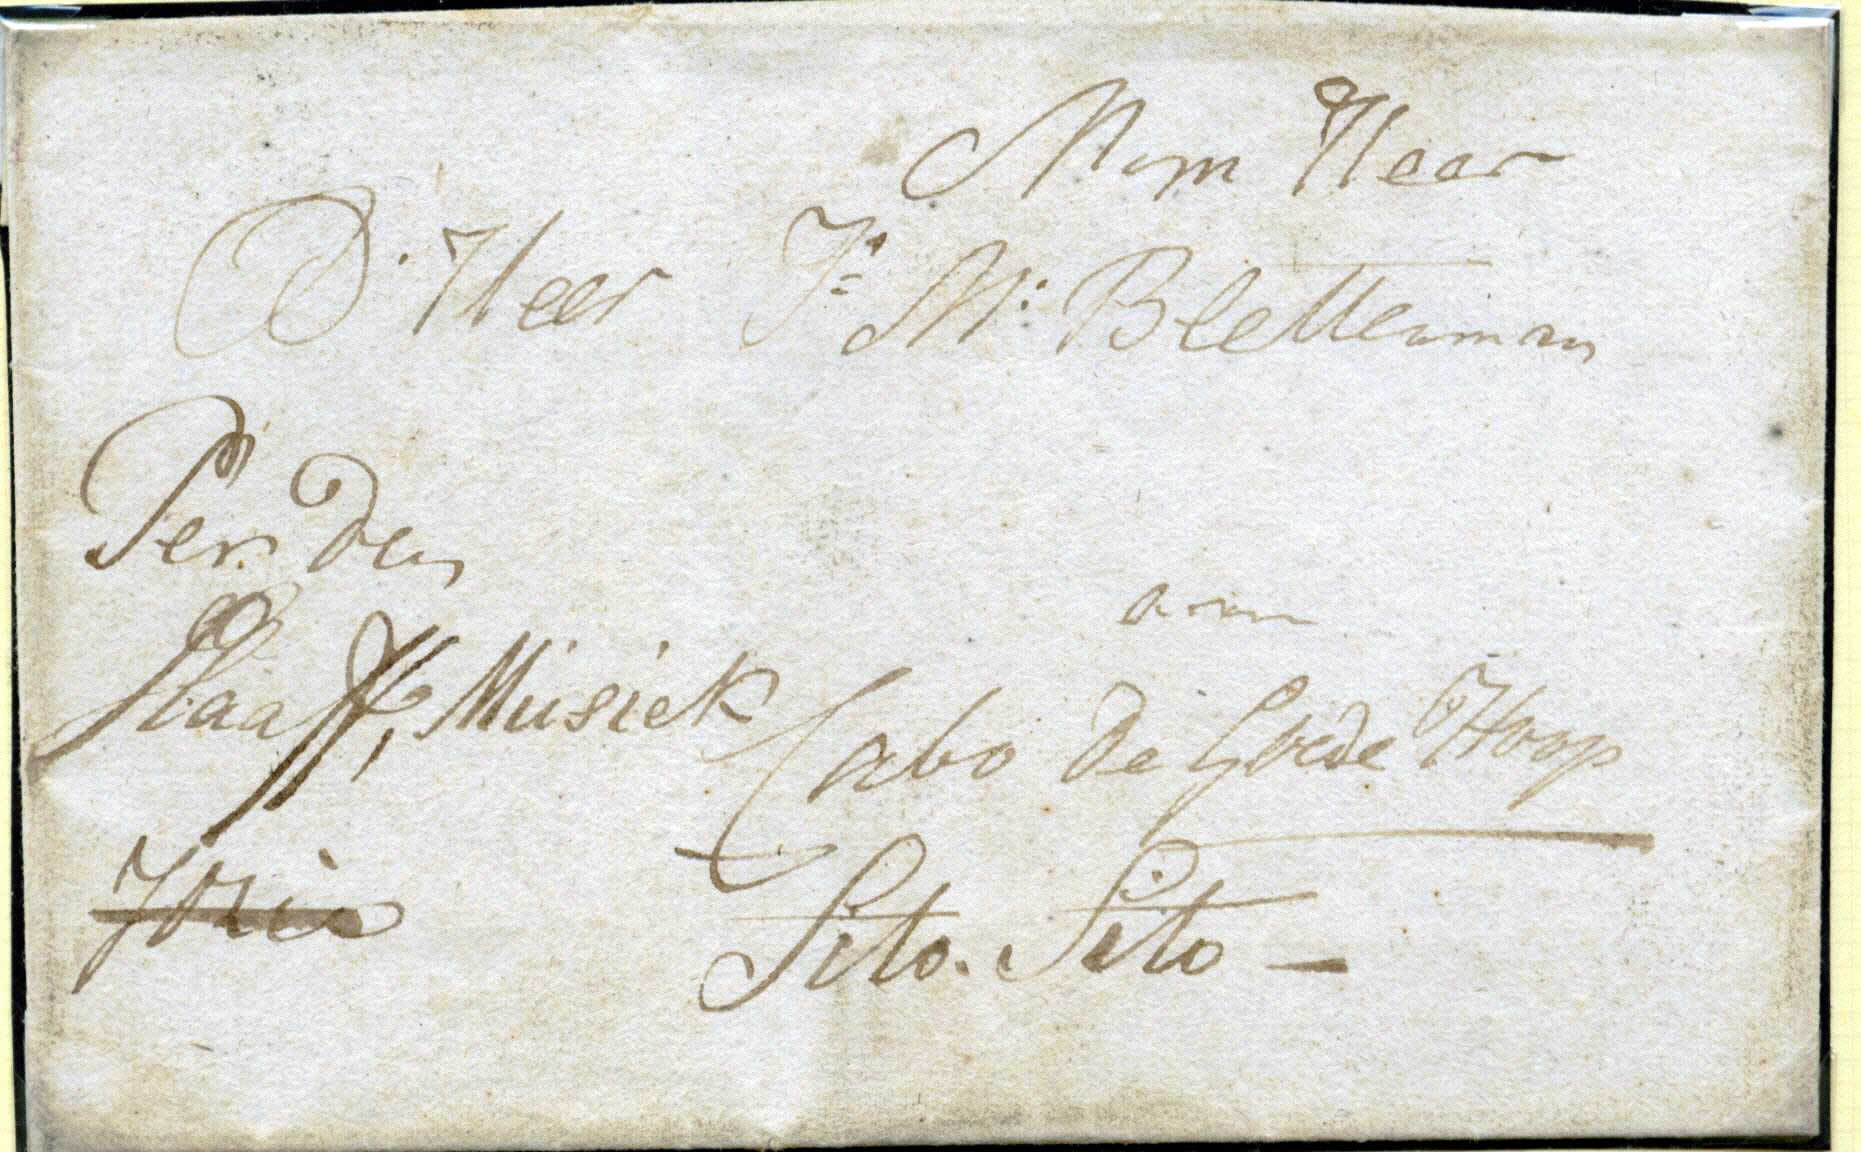 Myn Heer
D. Heer J: M: Bletterman
Per Den
Slaaff, Musiek
aan
Cabo De Goede Hoop
Sito. Sito —